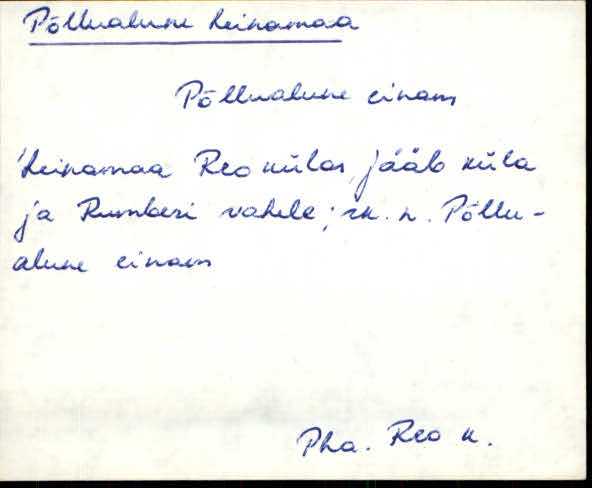 Põllualune heinamaa
Põllualune einam
'heinamaa Reo külas, jääb küla
ja Rumberi vahele; rk. n. Põllu-
alune einam
Pha. Reo k.